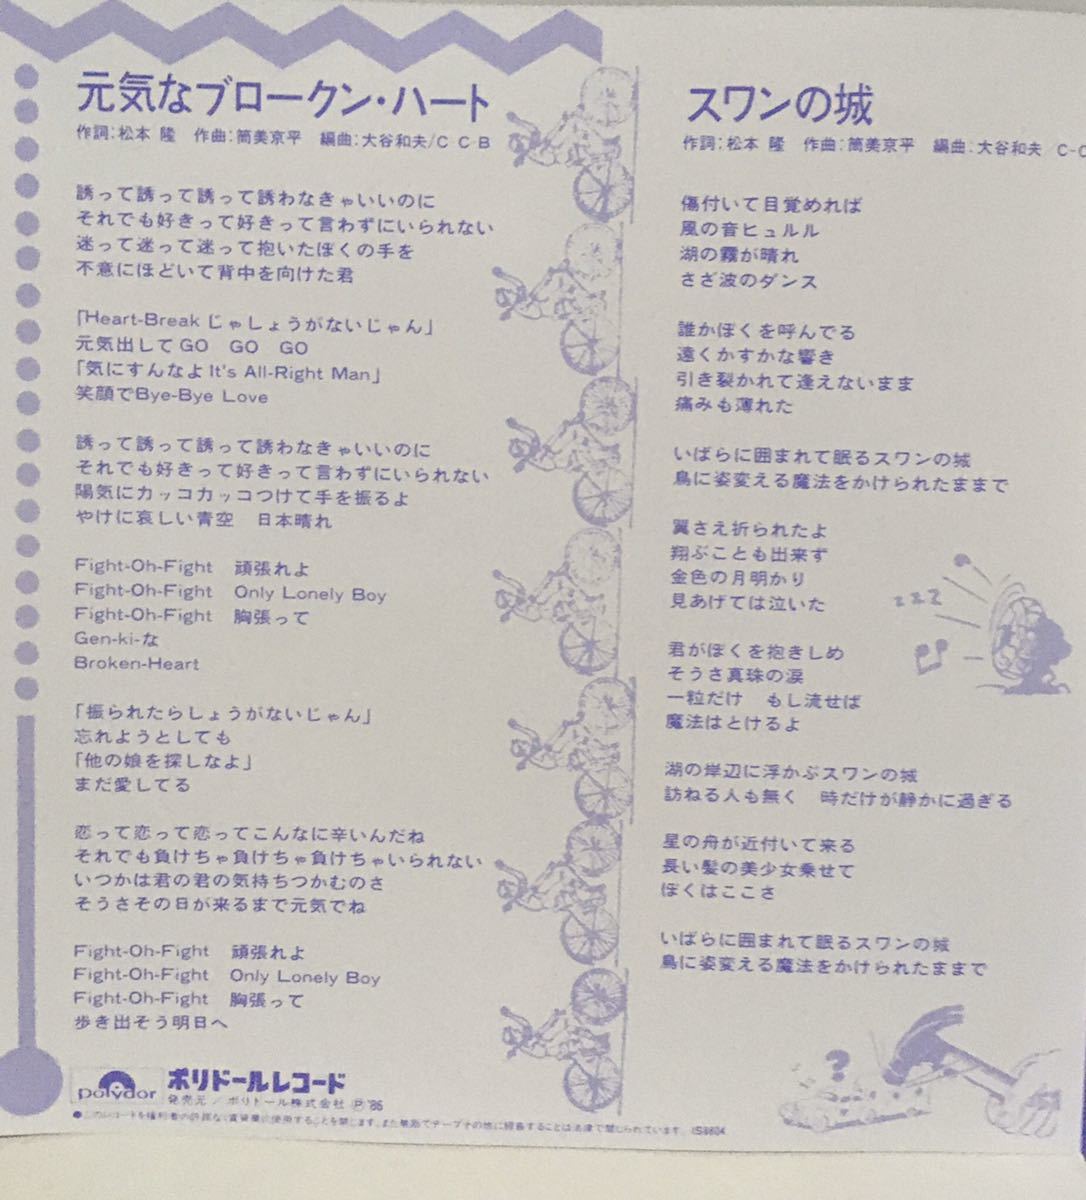 元気なブロークン・ハート
作詞:松本 隆 作曲:筒美京平 編曲:大谷和夫/C-C-B
誘って誘って誘って誘わなきゃいいのに
それでも好きって好きって言わずにいられない
迷って迷って迷って抱いたぼくの手を
不意にほどいて背中を向けた君
「Heart-Breakじゃしょうがないじゃん」
元気出してGO GO GO
「気にすんなよIt's All-Right Man」
笑顔でBye-Bye Love
誘って誘って誘って誘わなきゃいいのに
それでも好きって好きって言わずにいられない
陽気にカッコカッコつけて手を振るよ
やけに哀しい青空 日本晴れ
Fight-Oh-Fight 頑張れよ
Fight-Oh-Fight Only Lonely Boy
Fight-Oh-Fight 胸張って
Gen-ki-な
Broken-Heart
「振られたらしょうがないじゃん」
忘れようとしても
「他の娘を探しなよ」
まだ愛してる
恋って恋って恋ってこんなに辛いんだね
それでも負けちゃ負けちゃ負けちゃいられない
いつかは君の君の気持ちつかむのさ
そうさその日が来るまで元気でね
Fight-Oh-Fight 頑張れよ
Fight-Oh-Fight Only Lonely Boy
Fight-Oh-Fight 胸張って
歩き出そう明日へ
polydor ポリドールレコード
発売元/ポリドール株式会社 Ⓟ'86
●このレコードを権利者の許諾なく賃貸業に使用することを禁じます。また無断でテープその他に録音することは法律で禁じられています。
スワンの城
作詞:松本 隆 作曲:筒美京平 編曲:大谷和夫/C-C
傷付いて目覚めれば
風の音ヒュルル
湖の霧が晴れ
さざ波のダンス
誰かぼくを呼んでる
遠くかすかな響き
引き裂かれて逢えないまま
痛みも薄れた
いばらに囲まれて眠るスワンの城
鳥に姿変える魔法をかけられたままで
翼さえ折られたよ
翔ぶことも出来ず
金色の月明かり
見あげては泣いた
君がぼくを抱きしめ
そうさ真珠の涙
一粒だけ もし流せば
魔法はとけるよ
湖の岸辺に浮かぶスワンの城
訪ねる人も無く 時だけが静かに過ぎる
星の舟が近付いて来る
長い髪の美少女乗せて
ぼくはここさ
いばらに囲まれて眠るスワンの城
鳥に姿変える魔法をかけられたままで
zzz
?